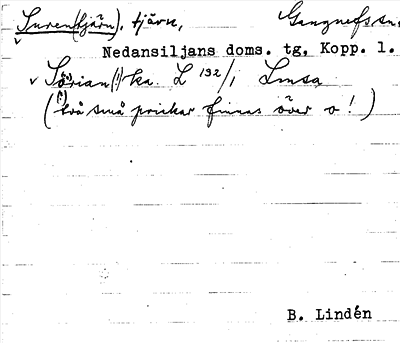 Suren(tjärn), tjärn, Gangnefs sn.
Nedansiljans doms. tg. Kopp. l.
v Sörian(!)rka. L 132/1 Lmsa
(två små prickar finnas över o!)
B. Lindén